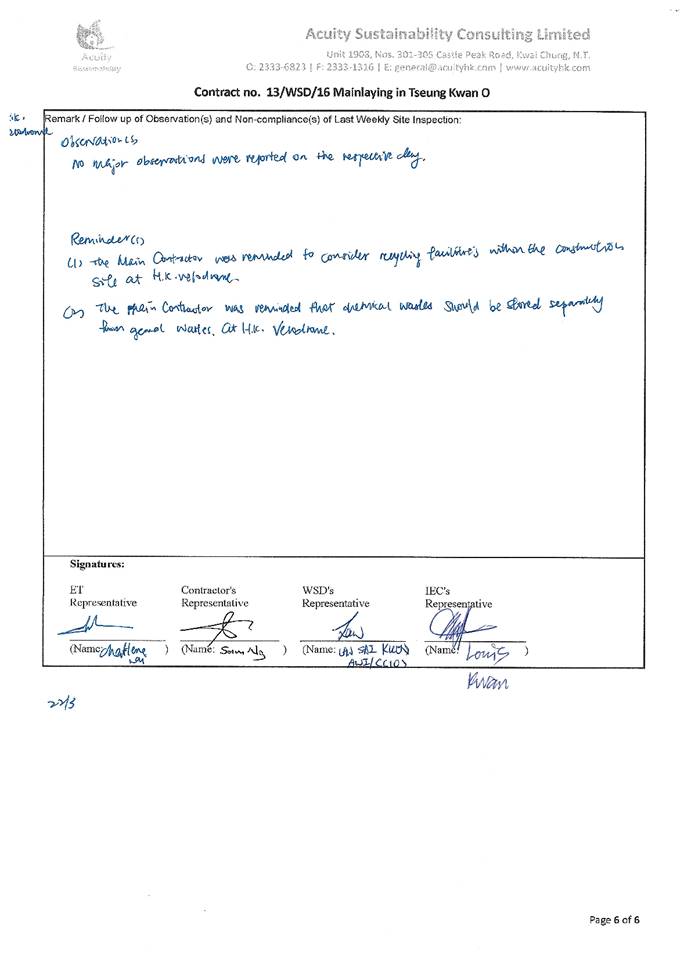 Acuity
Sustainability
Acuity Sustainability Consulting Limited
Unit 1908, Nos. 301-305 Castle Peak Road, Kwai Chung, N.T.
O: 2333-6823 | F: 2333-1316 | E: general@acuityhk.com | www.acuityhk.com
Contract no. 13/WSD/16 Mainlaying in Tseung Kwan O
Remark / Follow up of Observation(s) and Non-compliance(s) of Last Weekly Site Inspection:
Observation(s)
No major observations were reported on the respective day.
Reminder(s)
(1) The Main Contractor was reminded to consider recycling facilities within the construction
site at H.K. velodrome.
(2) The Main Contractor was reminded that chemical wastes should be stored separately
from general wastes. at H.K. Velodrome.
Signatures:
ET
Representative
Contractor's
Representative
WSD's
Representative
IEC's
Representative
(Name: Charlene )
(Name: Sam Ng )
(Name: LAW SAI KWON
(Name: Louis )
Kwan
22/3
Page 6 of 6